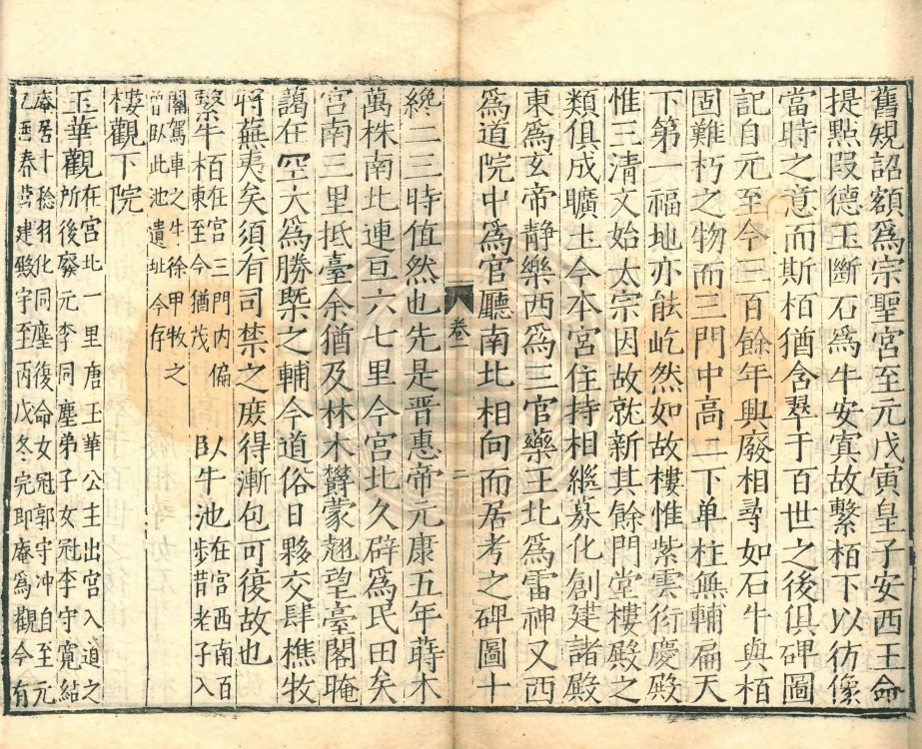 舊規詔額爲宗聖宮至元戊寅皇子安西王命
提點叚德玉斷石爲牛安寘故繫栢下以彷像
當時之意而斯栢猶含翠于百世之後俱碑圖
記自元至今三百餘年興廢相尋如石牛與栢
固難朽之物而三門中高二下单柱無輔扁天
下第一福地亦能屹然如故樓惟紫雲衍慶殿
惟三清文始太宗因故就新其餘門堂樓殿之
類俱成曠土今本宮住持相繼募化創建諸殿
東爲玄帝静樂西爲三官藥王北爲雷神又西
爲道院中爲官廳南北相向而居考之碑圖十
卷一
二
纔二三時值然也先是晋惠帝元康五年蒔木
萬株南北連亘六七里今宮北久辟爲民田矣
宮南三里抵臺余猶及林木欝蒙翹望臺閣晻
藹在空大爲勝槩之輔今道俗日夥交肆樵牧
將蕪夷矣須有司禁之庶得漸包可復故也
繫牛栢在宮三門内偏東至今猶茂 卧牛池在宮西南百步昔老子入
關駕車之牛徐甲牧之曾卧此池遺址今存
樓觀下院
玉華觀在宮北一里唐玉華公主出宮入道之所後廢元李同塵弟子女冠李守寬結
庵居十稔羽化同塵後命女冠郭守冲自至元乙酉春營建殿宇至丙戊冬完即庵爲觀今有